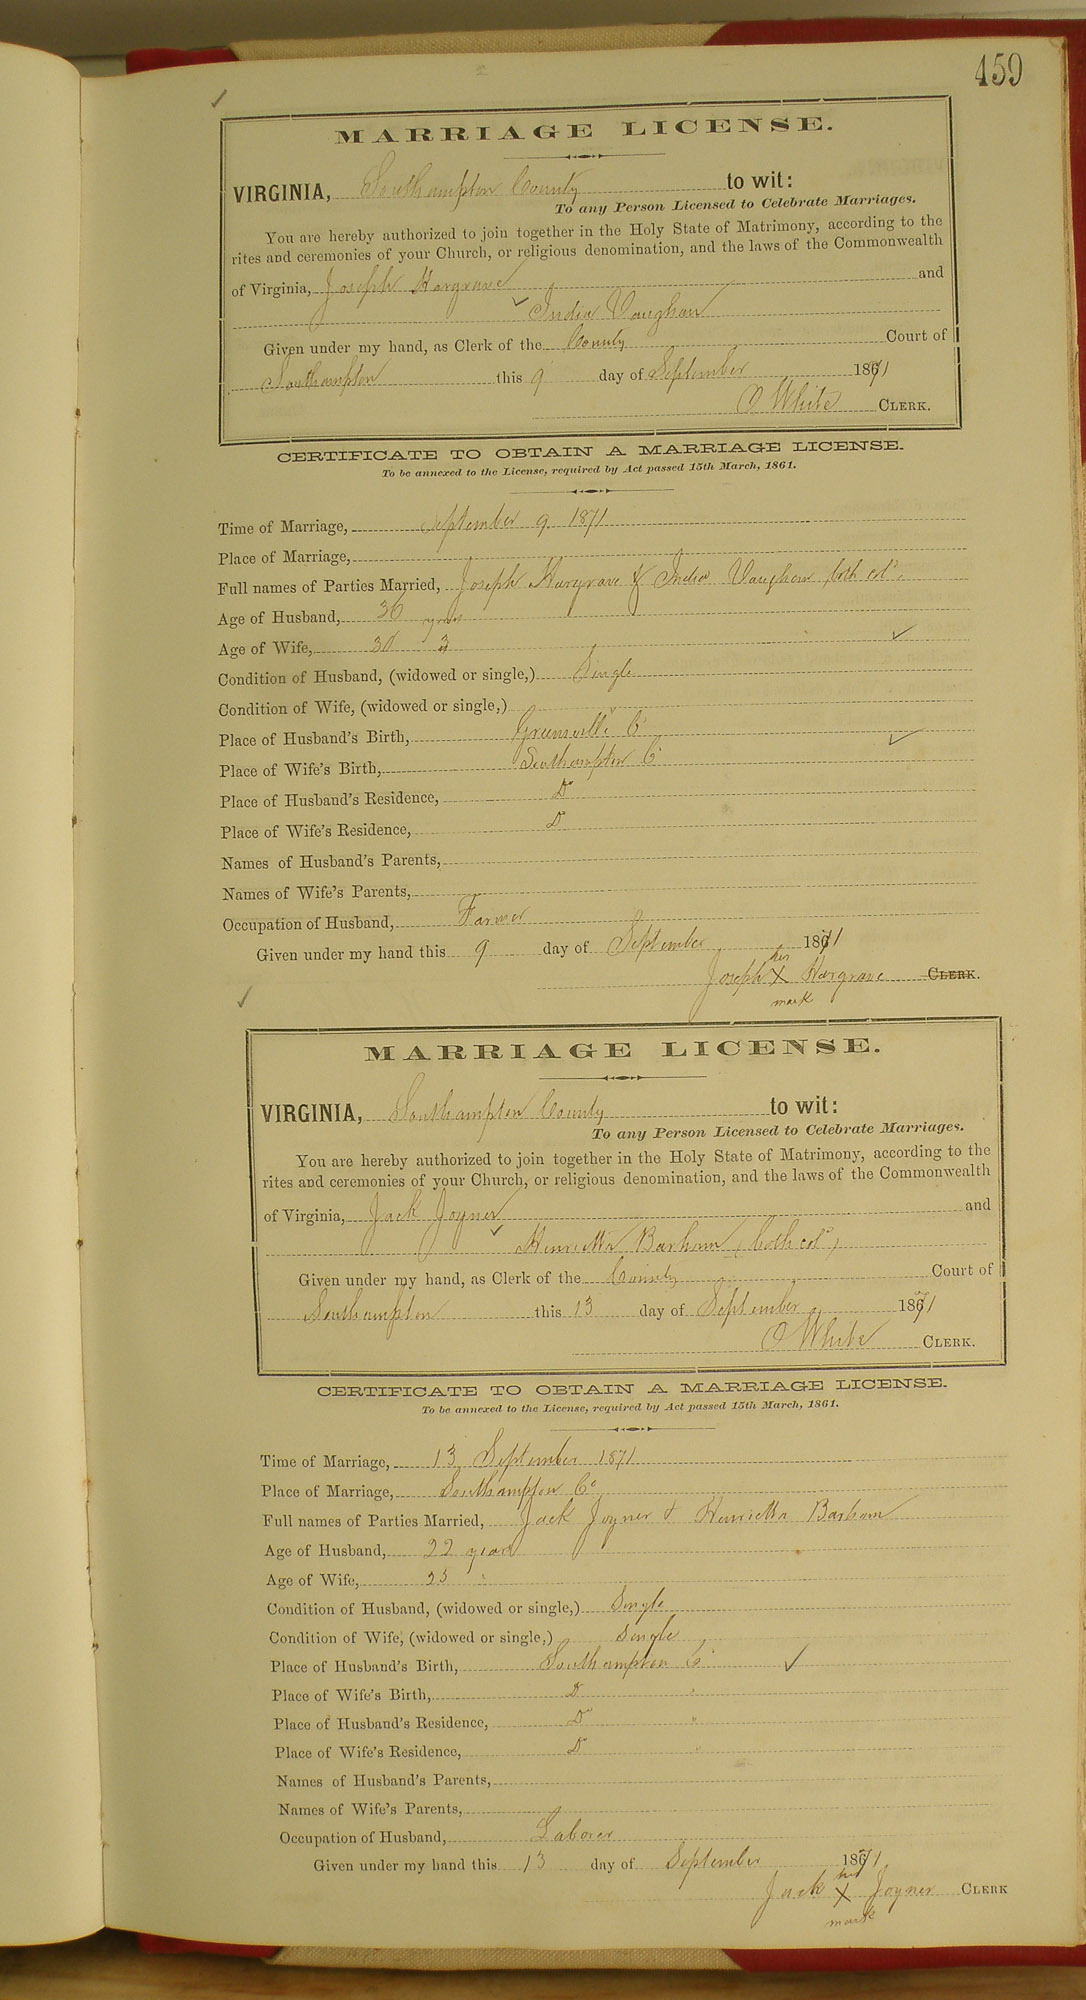 459
MARRIAGE LICENSE.
VIRGINIA, Southampton County to wit:
To any Person Licensed to Celebrate Marriages.
You are hereby authorized to join together in the Holy State of Matrimony, according to the
rites and ceremonies of your Church, or religious denomination, and the laws of the Commonwealth
of Virginia, Joseph Hargrave and
India Vaughan
Given under my hand, as Clerk of the County Court of
Southampton this 9 day of September 1871
O White CLERK.
CERTIFICATE TO OBTAIN A MARRIAGE LICENSE.
To be annexed to the License, required by Act passed 15th March, 1861.
Time of Marriage, September 9 1871
Place of Marriage,
Full names of Parties Married, Joseph Hargrave & India Vaughan both col^d.
Age of Husband, 36 years
Age of Wife,
Condition of Husband, (widowed or single,) Single
Condition of Wife, (widowed or single,)
Place of Husband's Birth, Greensville C^o
Place of Wife's Birth, Southampton C^o
Place of Husband's Residence, D^o
Place of Wife's Residence, D^o
Names of Husband's Parents,
Names of Wife's Parents,
Occupation of Husband, Farmer
Given under my hand this 9 day of September 1871
his
Joseph X Hargrave CLERK.
mark
MARRIAGE LICENSE.
VIRGINIA, Southampton County to wit:
To any Person Licensed to Celebrate Marriages.
You are hereby authorized to join together in the Holy State of Matrimony, according to the
rites and ceremonies of your Church, or religious denomination, and the laws of the Commonwealth
of Virginia, Jack Joyner and
Henrietta Barham (both col^d)
Given under my hand, as Clerk of the County Court of
Southampton this 13 day of September 1871
O White CLERK.
CERTIFICATE TO OBTAIN A MARRIAGE LICENSE.
To be annexed to the License, required by Act passed 15th March, 1861.
Time of Marriage, 13 September 1871
Place of Marriage, Southampton C^o
Full names of Parties Married, Jack Joyner & Henrietta Barham
Age of Husband, 22 years
Age of Wife, 25 "
Condition of Husband, (widowed or single,) Single
Condition of Wife, (widowed or single,) Single
Place of Husband's Birth, Southampton C^o
Place of Wife's Birth, D^o "
Place of Husband's Residence, D^o "
Place of Wife's Residence, D^o "
Names of Husband's Parents,
Names of Wife's Parents,
Occupation of Husband, Laborer
Given under my hand this 13 day of September 1871
his
Jack X Joyner CLERK
mark